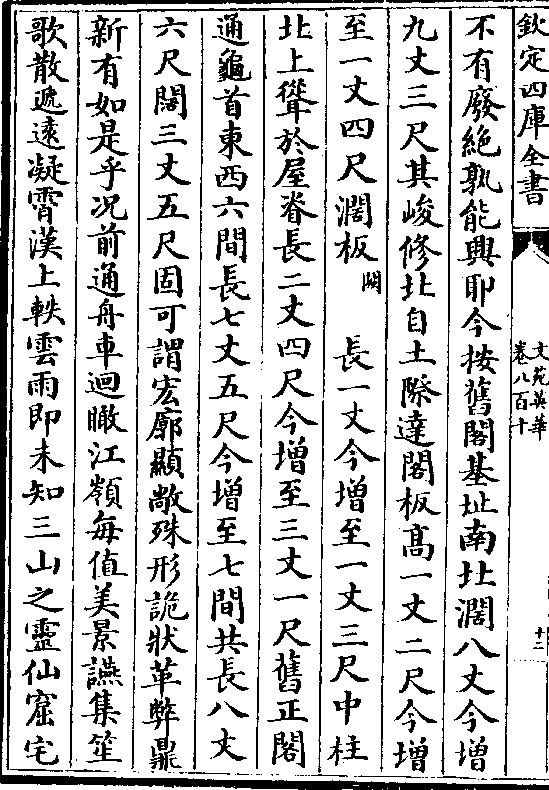 欽定四庫全書
文苑英華
卷八百十
十二
不有廢絶孰能興耶今按舊閣基址南北濶八丈今増
九丈三尺其峻修北自土際達閣板髙一丈二尺今増
至一丈四尺濶板闕長一丈今増至一丈三尺中柱
北上聳於屋脊長二丈四尺今增至三丈一尺舊正閣
通龜首東西六間長七丈五尺今增至七間共長八丈
六尺闊三丈五尺固可謂宏廓顯敞殊形詭狀革弊鼎
新有如是乎况前通舟車迴瞰江嶺每值美景讌集笙
歌散遞遠凝霄漢上軼雲雨即未知三山之靈仙窟宅